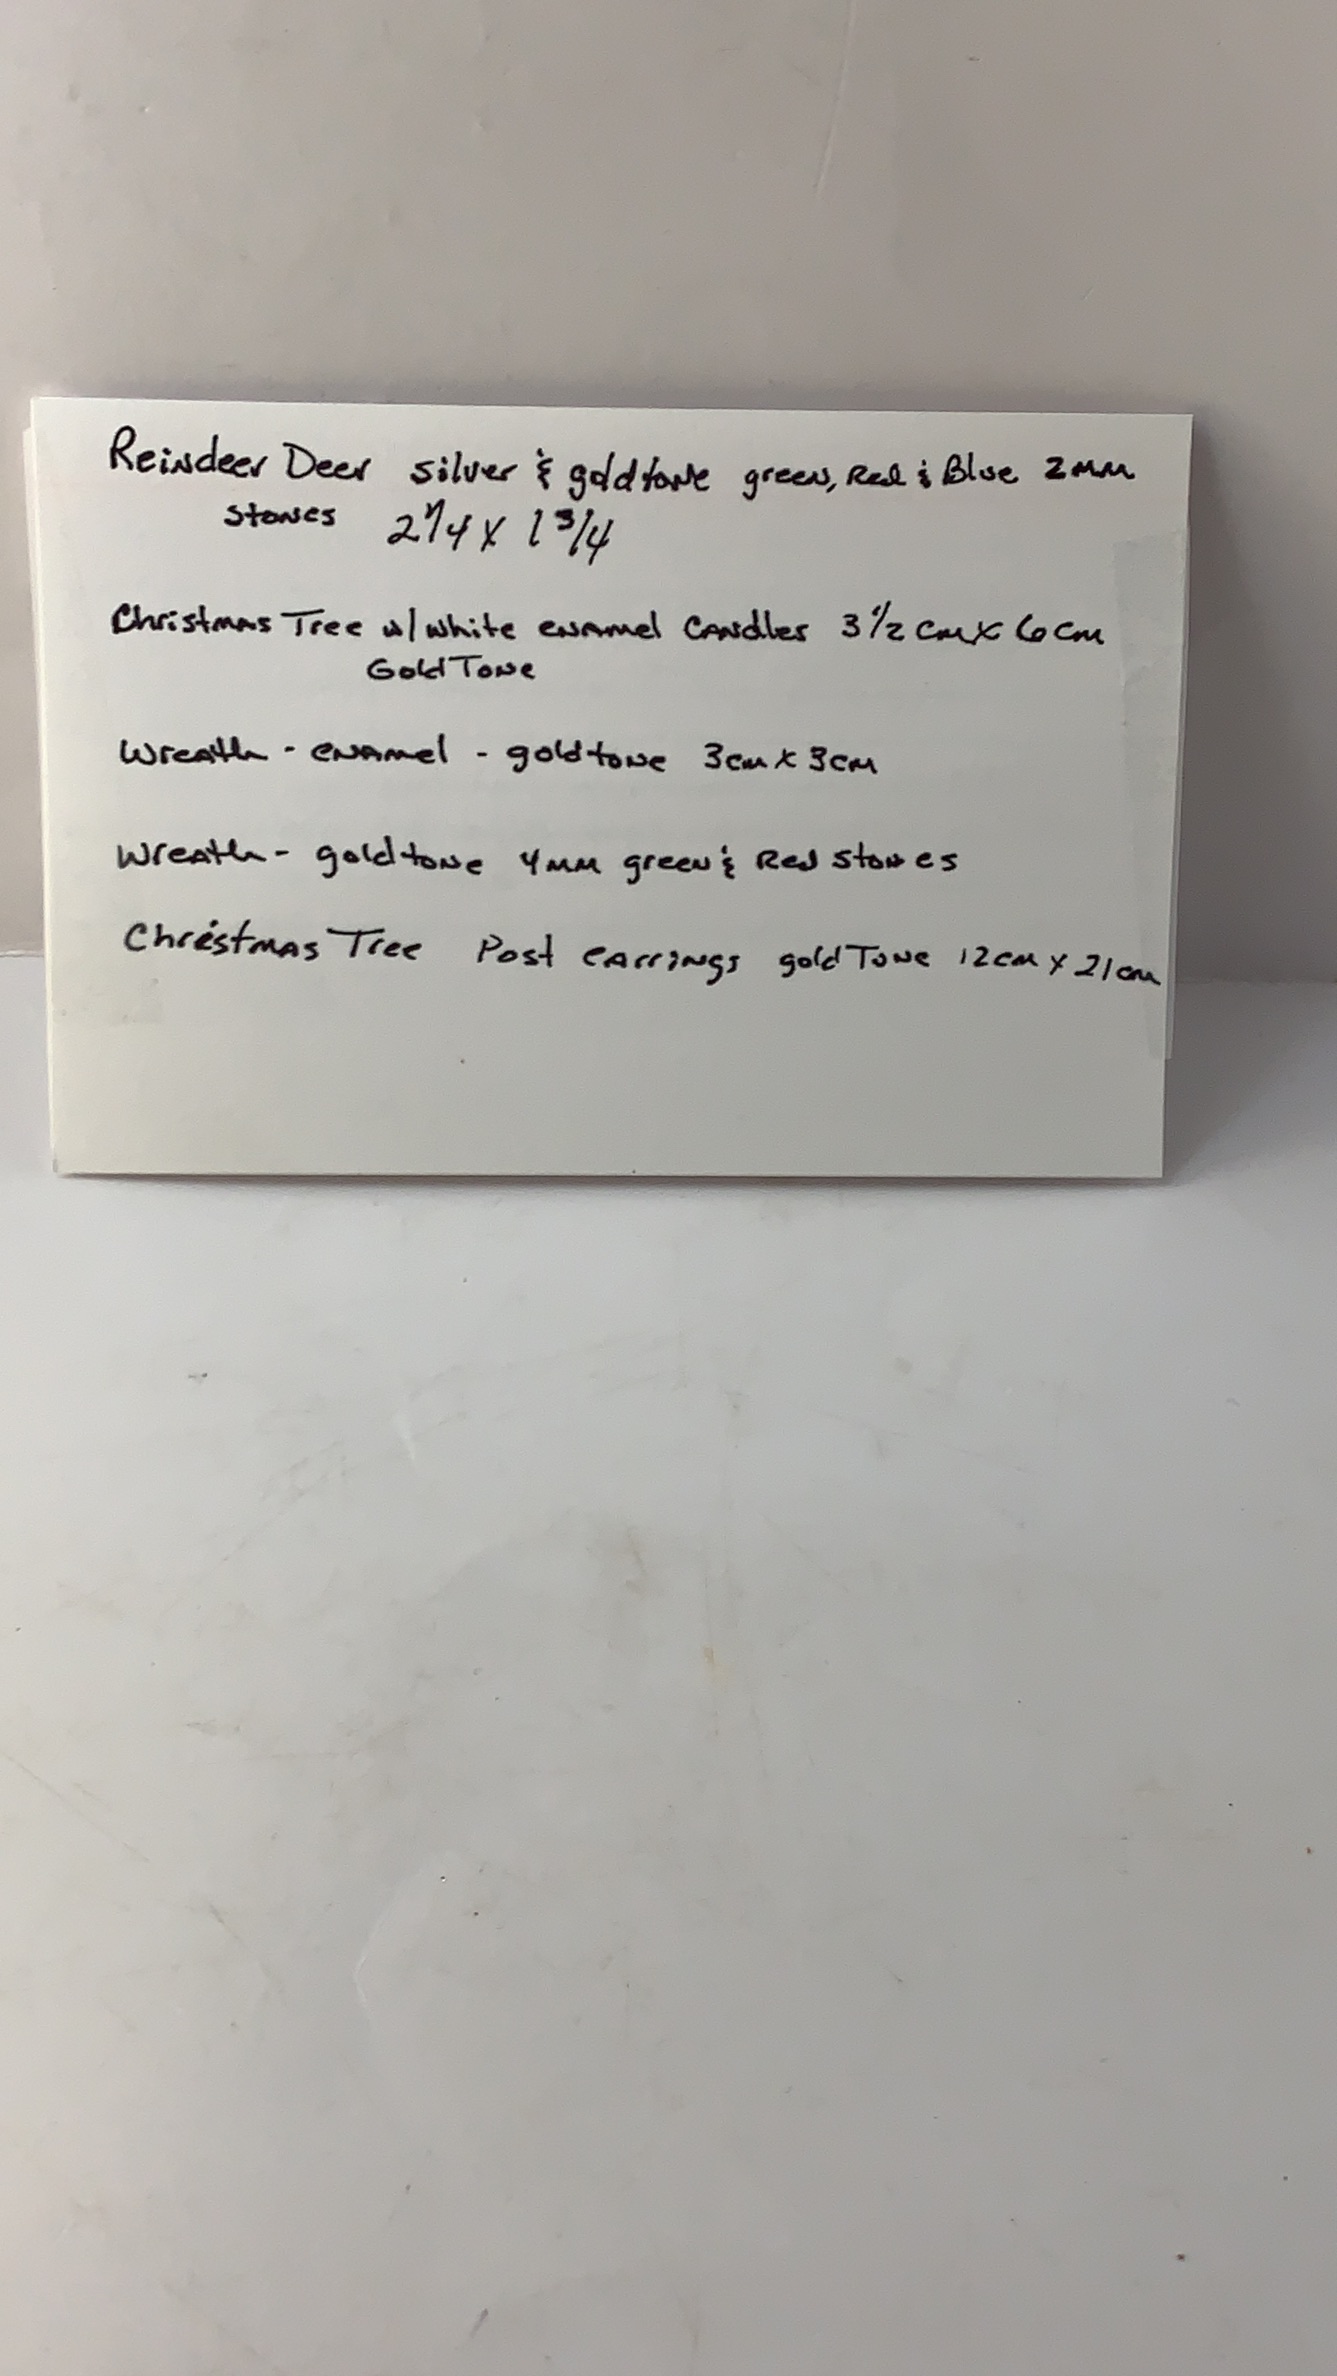 Reindeer Deer silver & goldtone green, Red & Blue 2mm
stones 2 1/4 x 1 3/4
Christmas Tree w/ white enamel Candles 3 1/2 cm x 6 cm
Gold Tone
Wreath - enamel - goldtone 3cm x 3cm
Wreath - goldtone 4mm green & Red stones
Christmas Tree Post earrings gold Tone 12cm x 21cm